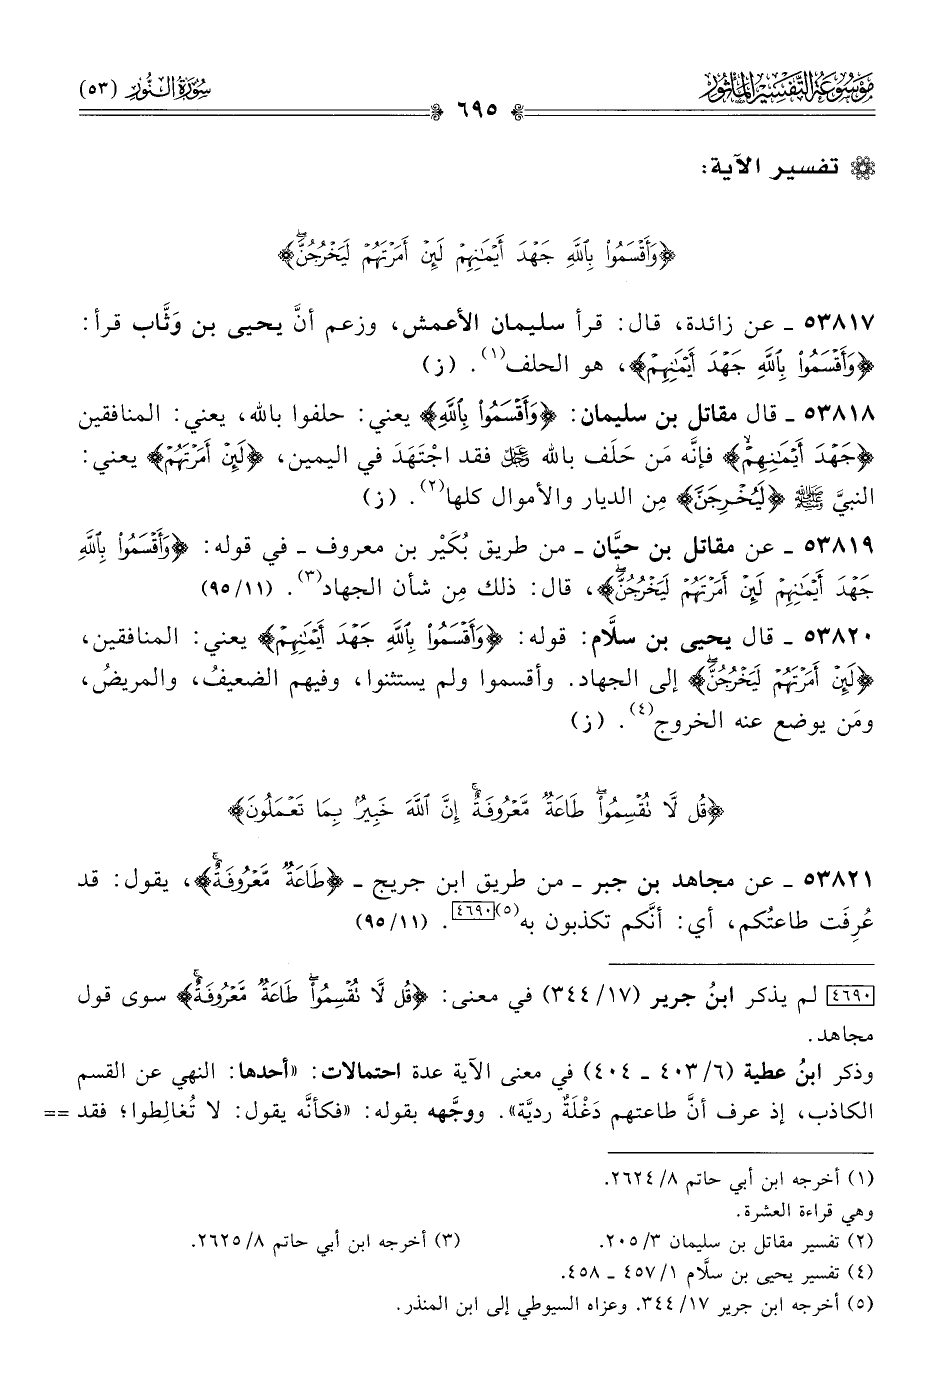 موسوعة التفسير المأثور
سورة النور (٥٣)
٦٩٥
تفسير الآية:
﴿وَأَقْسَمُوا۟ بِٱللَّهِ جَهْدَ أَيْمَـٰنِهِمْ لَئِنْ أَمَرْتَهُمْ لَيَخْرُجُنَّۖ﴾
٥٣٨١٧ ـ عن زائدة، قال: قرأ سليمان الأعمش، وزعم أنَّ يحيى بن وَثَّاب قرأ:
﴿وَأَقْسَمُوا۟ بِٱللَّهِ جَهْدَ أَيْمَـٰنِهِمْ﴾، هو الحلف(١). (ز)
٥٣٨١٨ ـ قال مقاتل بن سليمان: ﴿وَأَقْسَمُوا۟ بِٱللَّهِ﴾ يعني: حلفوا بالله، يعني: المنافقين
﴿جَهْدَ أَيْمَـٰنِهِمْ﴾ فإنَّه مَن حَلَف بالله ﷻ فقد اجْتَهَدَ في اليمين، ﴿لَئِنْ أَمَرْتَهُمْ﴾ يعني:
النبيَّ ﷺ ﴿لَيَخْرُجُنَّ﴾ مِن الديار والأموال كلها(٢). (ز)
٥٣٨١٩ ـ عن مقاتل بن حيَّان ـ من طريق بُكَيْر بن معروف ـ في قوله: ﴿وَأَقْسَمُوا۟ بِٱللَّهِ
جَهْدَ أَيْمَـٰنِهِمْ لَئِنْ أَمَرْتَهُمْ لَيَخْرُجُنَّۖ﴾، قال: ذلك مِن شأن الجهاد(٣). (١١/٩٥)
٥٣٨٢٠ ـ قال يحيى بن سلَّام: قوله: ﴿وَأَقْسَمُوا۟ بِٱللَّهِ جَهْدَ أَيْمَـٰنِهِمْ﴾ يعني: المنافقين،
﴿لَئِنْ أَمَرْتَهُمْ لَيَخْرُجُنَّۖ﴾ إلى الجهاد. وأقسموا ولم يستثنوا، وفيهم الضعيفُ، والمريضُ،
ومَن يوضع عنه الخروج(٤). (ز)
﴿قُل لَّا تُقْسِمُوا۟ۖ طَاعَةٌ مَّعْرُوفَةٌۚ إِنَّ ٱللَّهَ خَبِيرٌۢ بِمَا تَعْمَلُونَ﴾
٥٣٨٢١ ـ عن مجاهد بن جبر ـ من طريق ابن جريج ـ ﴿طَاعَةٌ مَّعْرُوفَةٌۚ﴾، يقول: قد
عُرِفَت طاعتُكم، أي: أنَّكم تكذبون به(٥)[٤٦٩٠]. (١١/٩٥)
[٤٦٩٠] لم يذكر ابنُ جرير (١٧/٣٤٤) في معنى: ﴿قُل لَّا تُقْسِمُوا۟ۖ طَاعَةٌ مَّعْرُوفَةٌۚ﴾ سوى قول
مجاهد.
وذكر ابنُ عطية (٦/٤٠٣ ـ ٤٠٤) في معنى الآية عدة احتمالات: «أحدها: النهي عن القسم
الكاذب، إذ عرف أنَّ طاعتهم دَغْلَةٌ رديَّة». ووجَّهه بقوله: «فكأنَّه يقول: لا تُغالِطوا؛ فقد ==
(١) أخرجه ابن أبي حاتم ٨/٢٦٢٤.
وهي قراءة العشرة.
(٢) تفسير مقاتل بن سليمان ٣/٢٠٥. (٣) أخرجه ابن أبي حاتم ٨/٢٦٢٥.
(٤) تفسير يحيى بن سلَّام ١/٤٥٧ ـ ٤٥٨.
(٥) أخرجه ابن جرير ١٧/٣٤٤. وعزاه السيوطي إلى ابن المنذر.